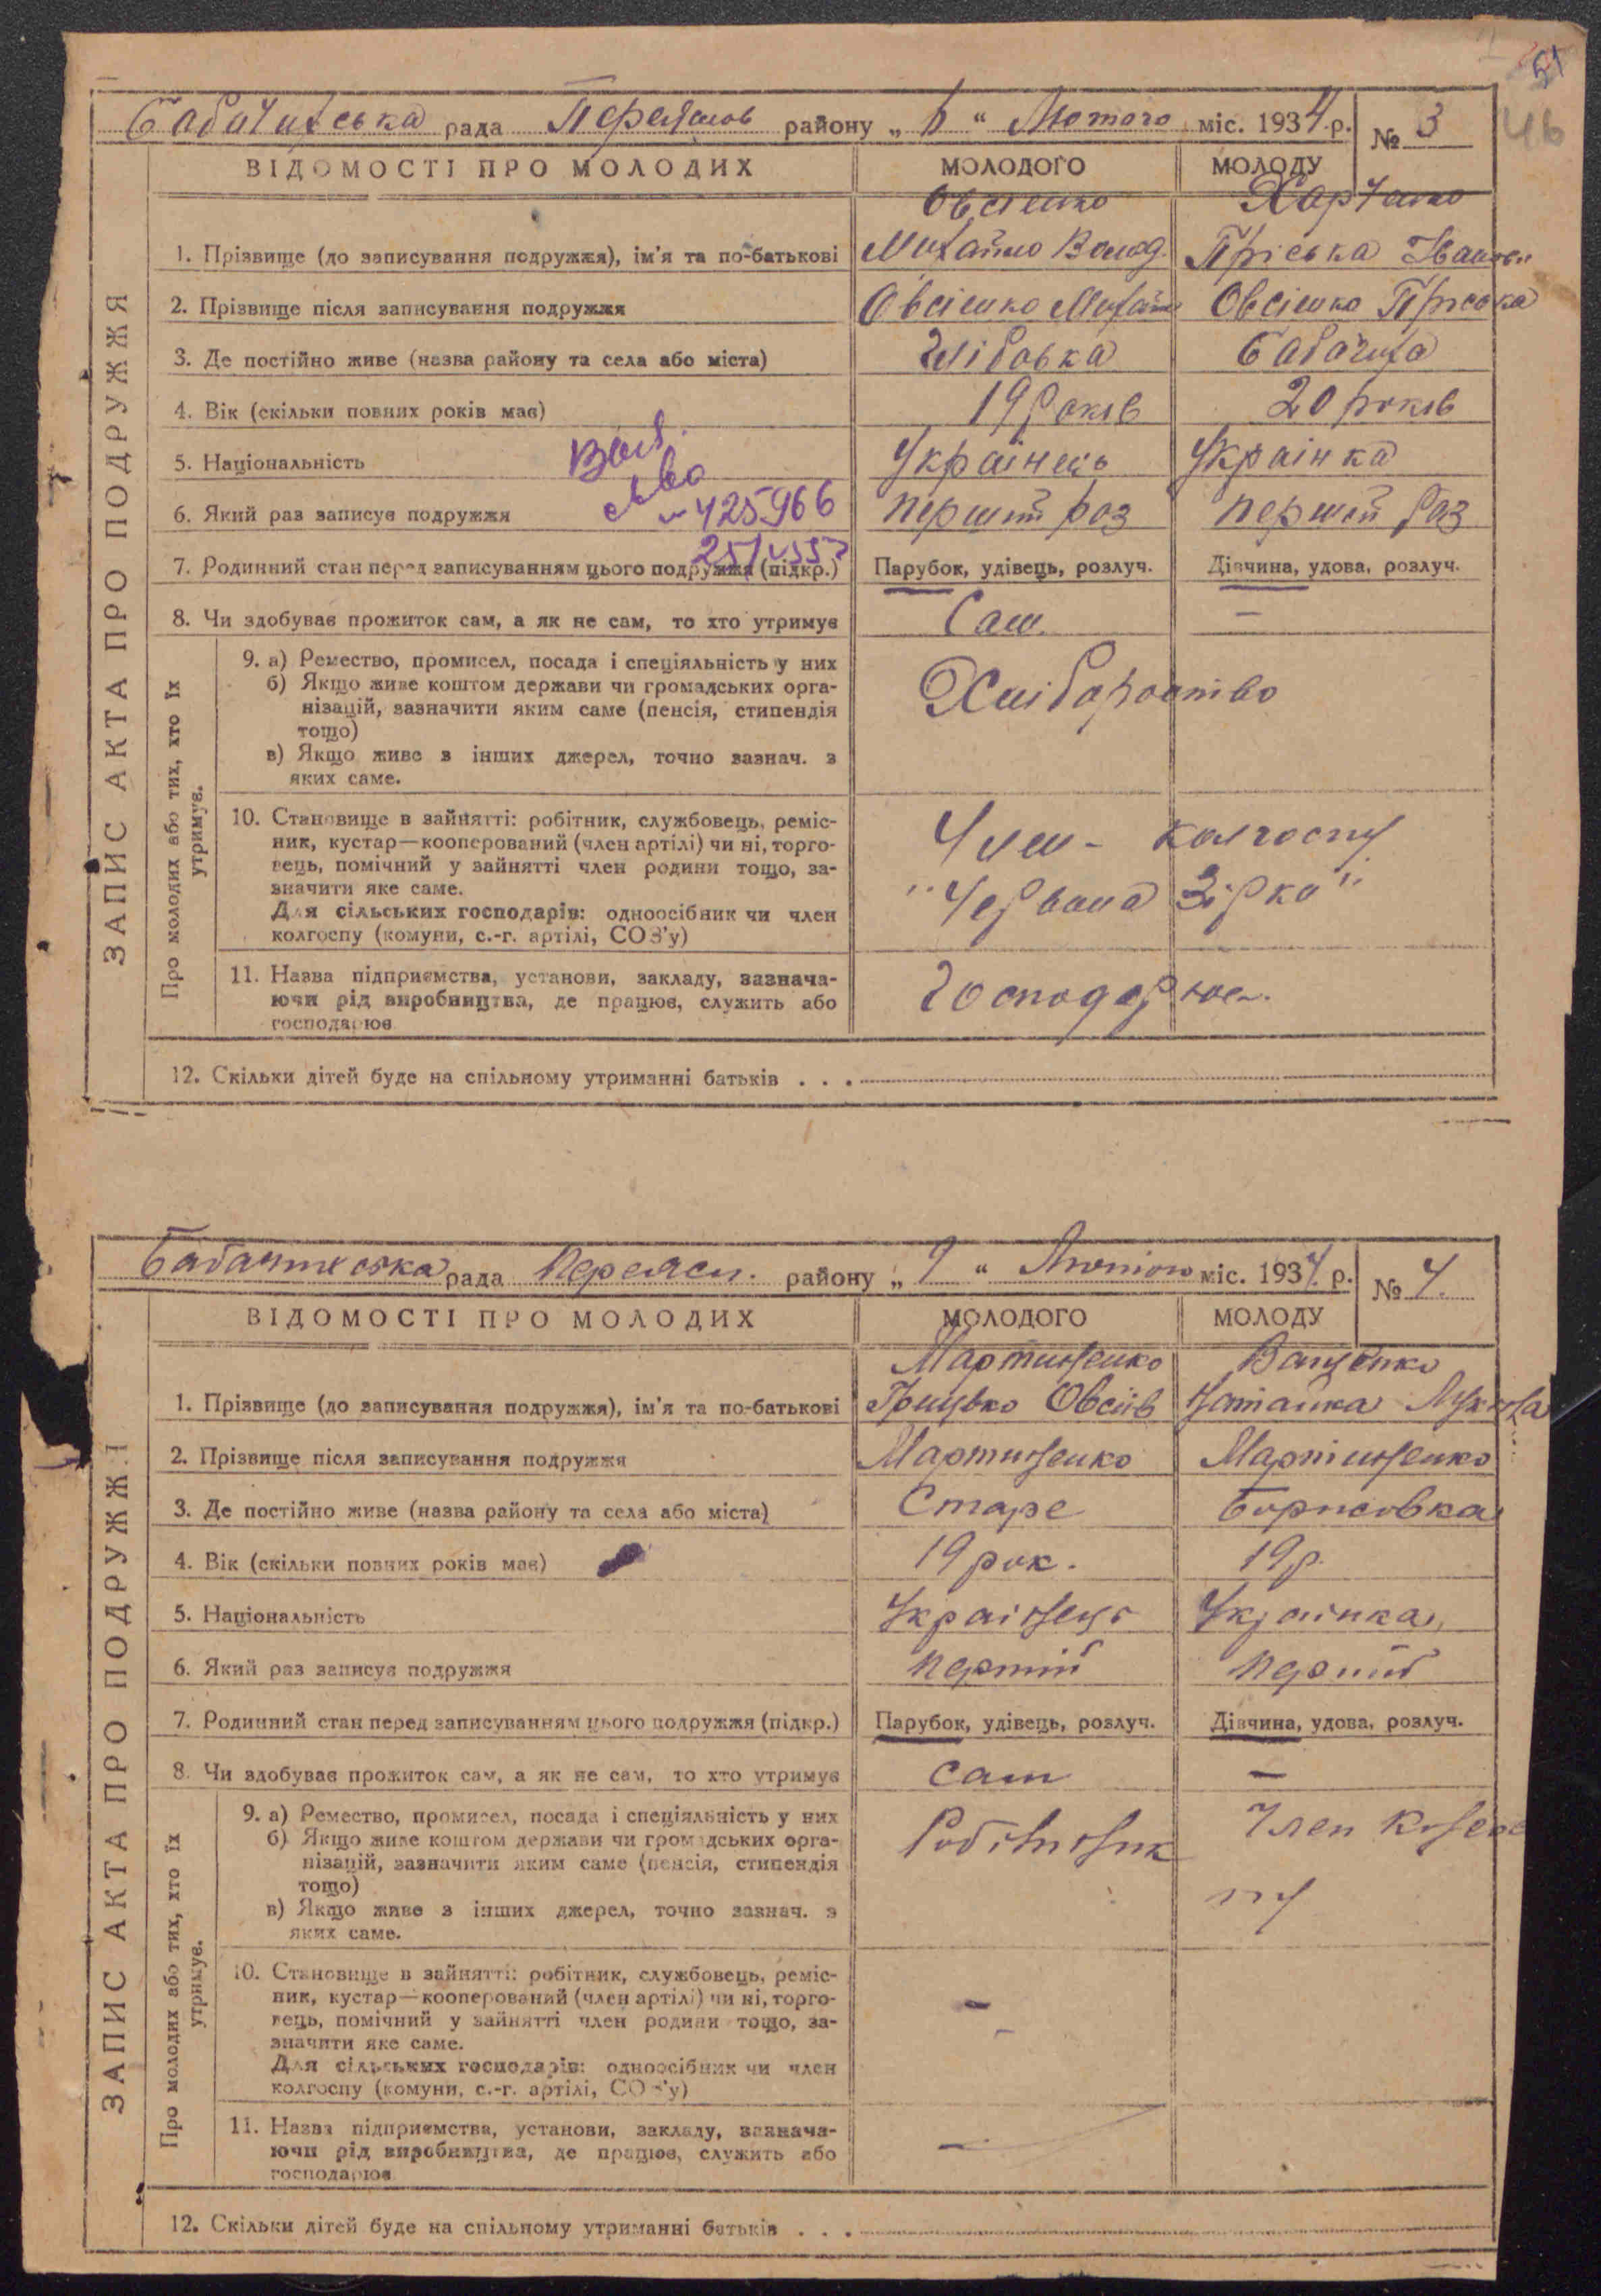 51
46
Бабачихська рада Переяслов району „ 6 “ Лютого міс. 1934 р. № 3
ВІДОМОСТІ ПРО МОЛОДИХ МОЛОДОГО МОЛОДУ
ЗАПИС АКТА ПРО ПОДРУЖЖЯ
Овсієнко Харченко
1. Прізвище (до записування подружжя), ім'я та по-батькові Михайло Волод. Пріська Іванов.
2. Прізвище після записування подружжя Овсієнко Михайло Овсієнко Пріська
3. Де постійно живе (назва району та села або міста) Бабачиха
4. Вік (скільки повних років має) 19 років 20 років
5. Національність Українець Українка
6. Який раз записує подружжя 425966 перший раз перший раз
7. Родинний стан перед записуванням цього подружжя (підкр.) Парубок, удівець, розлуч. Дівчина, удова, розлуч.
8. Чи здобуває прожиток сам, а як не сам, то хто утримує Сам. —
Про молодих або тих, хто їх утримує.
9. а) Ремество, промисел, посада і спеціяльність у них
б) Якщо живе коштом держави чи громадських орга-
нізацій, зазначити яким саме (пенсія, стипендія
тощо)
в) Якщо живе з інших джерел, точно зазнач. з
яких саме.
Хліборобство
10. Становище в зайнятті: робітник, службовець, реміс-
ник, кустар—кооперований (член артілі) чи ні, торго-
вець, помічний у зайнятті член родини тощо, за-
значити яке саме.
Для сільських господарів: одноосібник чи член
колгоспу (комуни, с.-г. артілі, СОЗ'у)
Член - колгоспу
"Червона Зірка"
11. Назва підприємства, установи, закладу, зазнача-
ючи рід виробництва, де працює, служить або
господарює
Господарює.
12. Скільки дітей буде на спільному утриманні батьків . . .
Бабачихська рада Переясл. району „ 9 “ Лютого міс. 1934 р. № 4.
ВІДОМОСТІ ПРО МОЛОДИХ МОЛОДОГО МОЛОДУ
ЗАПИС АКТА ПРО ПОДРУЖЖЯ
Мартиненко Ващенко
1. Прізвище (до записування подружжя), ім'я та по-батькові Грицько Овсіїв
2. Прізвище після записування подружжя Мартиненко Мартиненко
3. Де постійно живе (назва району та села або міста) Старе Борисовка
4. Вік (скільки повних років має) 19 рок. 19 р.
5. Національність Українець Українка
6. Який раз записує подружжя перший перший
7. Родинний стан перед записуванням цього подружжя (підкр.) Парубок, удівець, розлуч. Дівчина, удова, розлуч.
8. Чи здобуває прожиток сам, а як не сам, то хто утримує сам —
Про молодих або тих, хто їх утримує.
9. а) Ремество, промисел, посада і спеціяльність у них
б) Якщо живе коштом держави чи громадських орга-
нізацій, зазначити яким саме (пенсія, стипендія
тощо)
в) Якщо живе з інших джерел, точно зазнач. з
яких саме.
Робітник Член
10. Становище в зайнятті: робітник, службовець, реміс-
ник, кустар—кооперований (член артілі) чи ні, торго-
вець, помічний у зайнятті член родини тощо, за-
значити яке саме.
Для сільських господарів: одноосібник чи член
колгоспу (комуни, с.-г. артілі, СОЗ'у)
—
11. Назва підприємства, установи, закладу, зазнача-
ючи рід виробництва, де працює, служить або
господарює
—
12. Скільки дітей буде на спільному утриманні батьків . . .